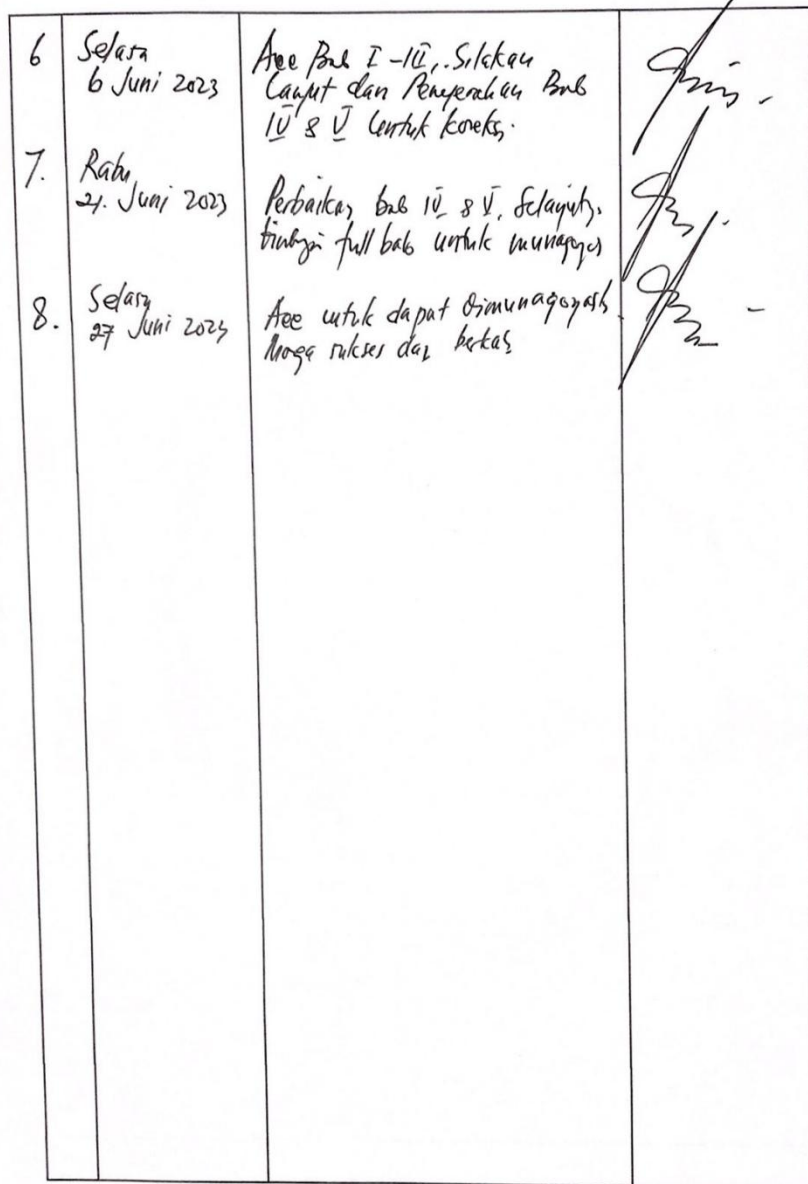 6 Selasa
6 Juni 2023
Acc Bab I - III, Silakan
Lanjut dan Penyerahan Bab
IV & V Untuk koreksi.
7. Rabu
21. Juni 2023
Perbaikan bab IV & V, Selanjutnya
full bab untuk munaqosyah
8. Selasa
27 Juni 2023
Acc untuk dapat dimunaqosyah
Moga sukses dan berkah